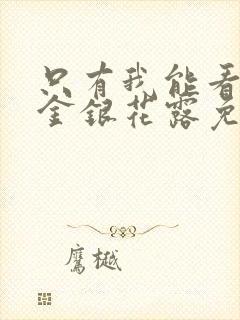 只有我能看
金銀花露免
鷹樾